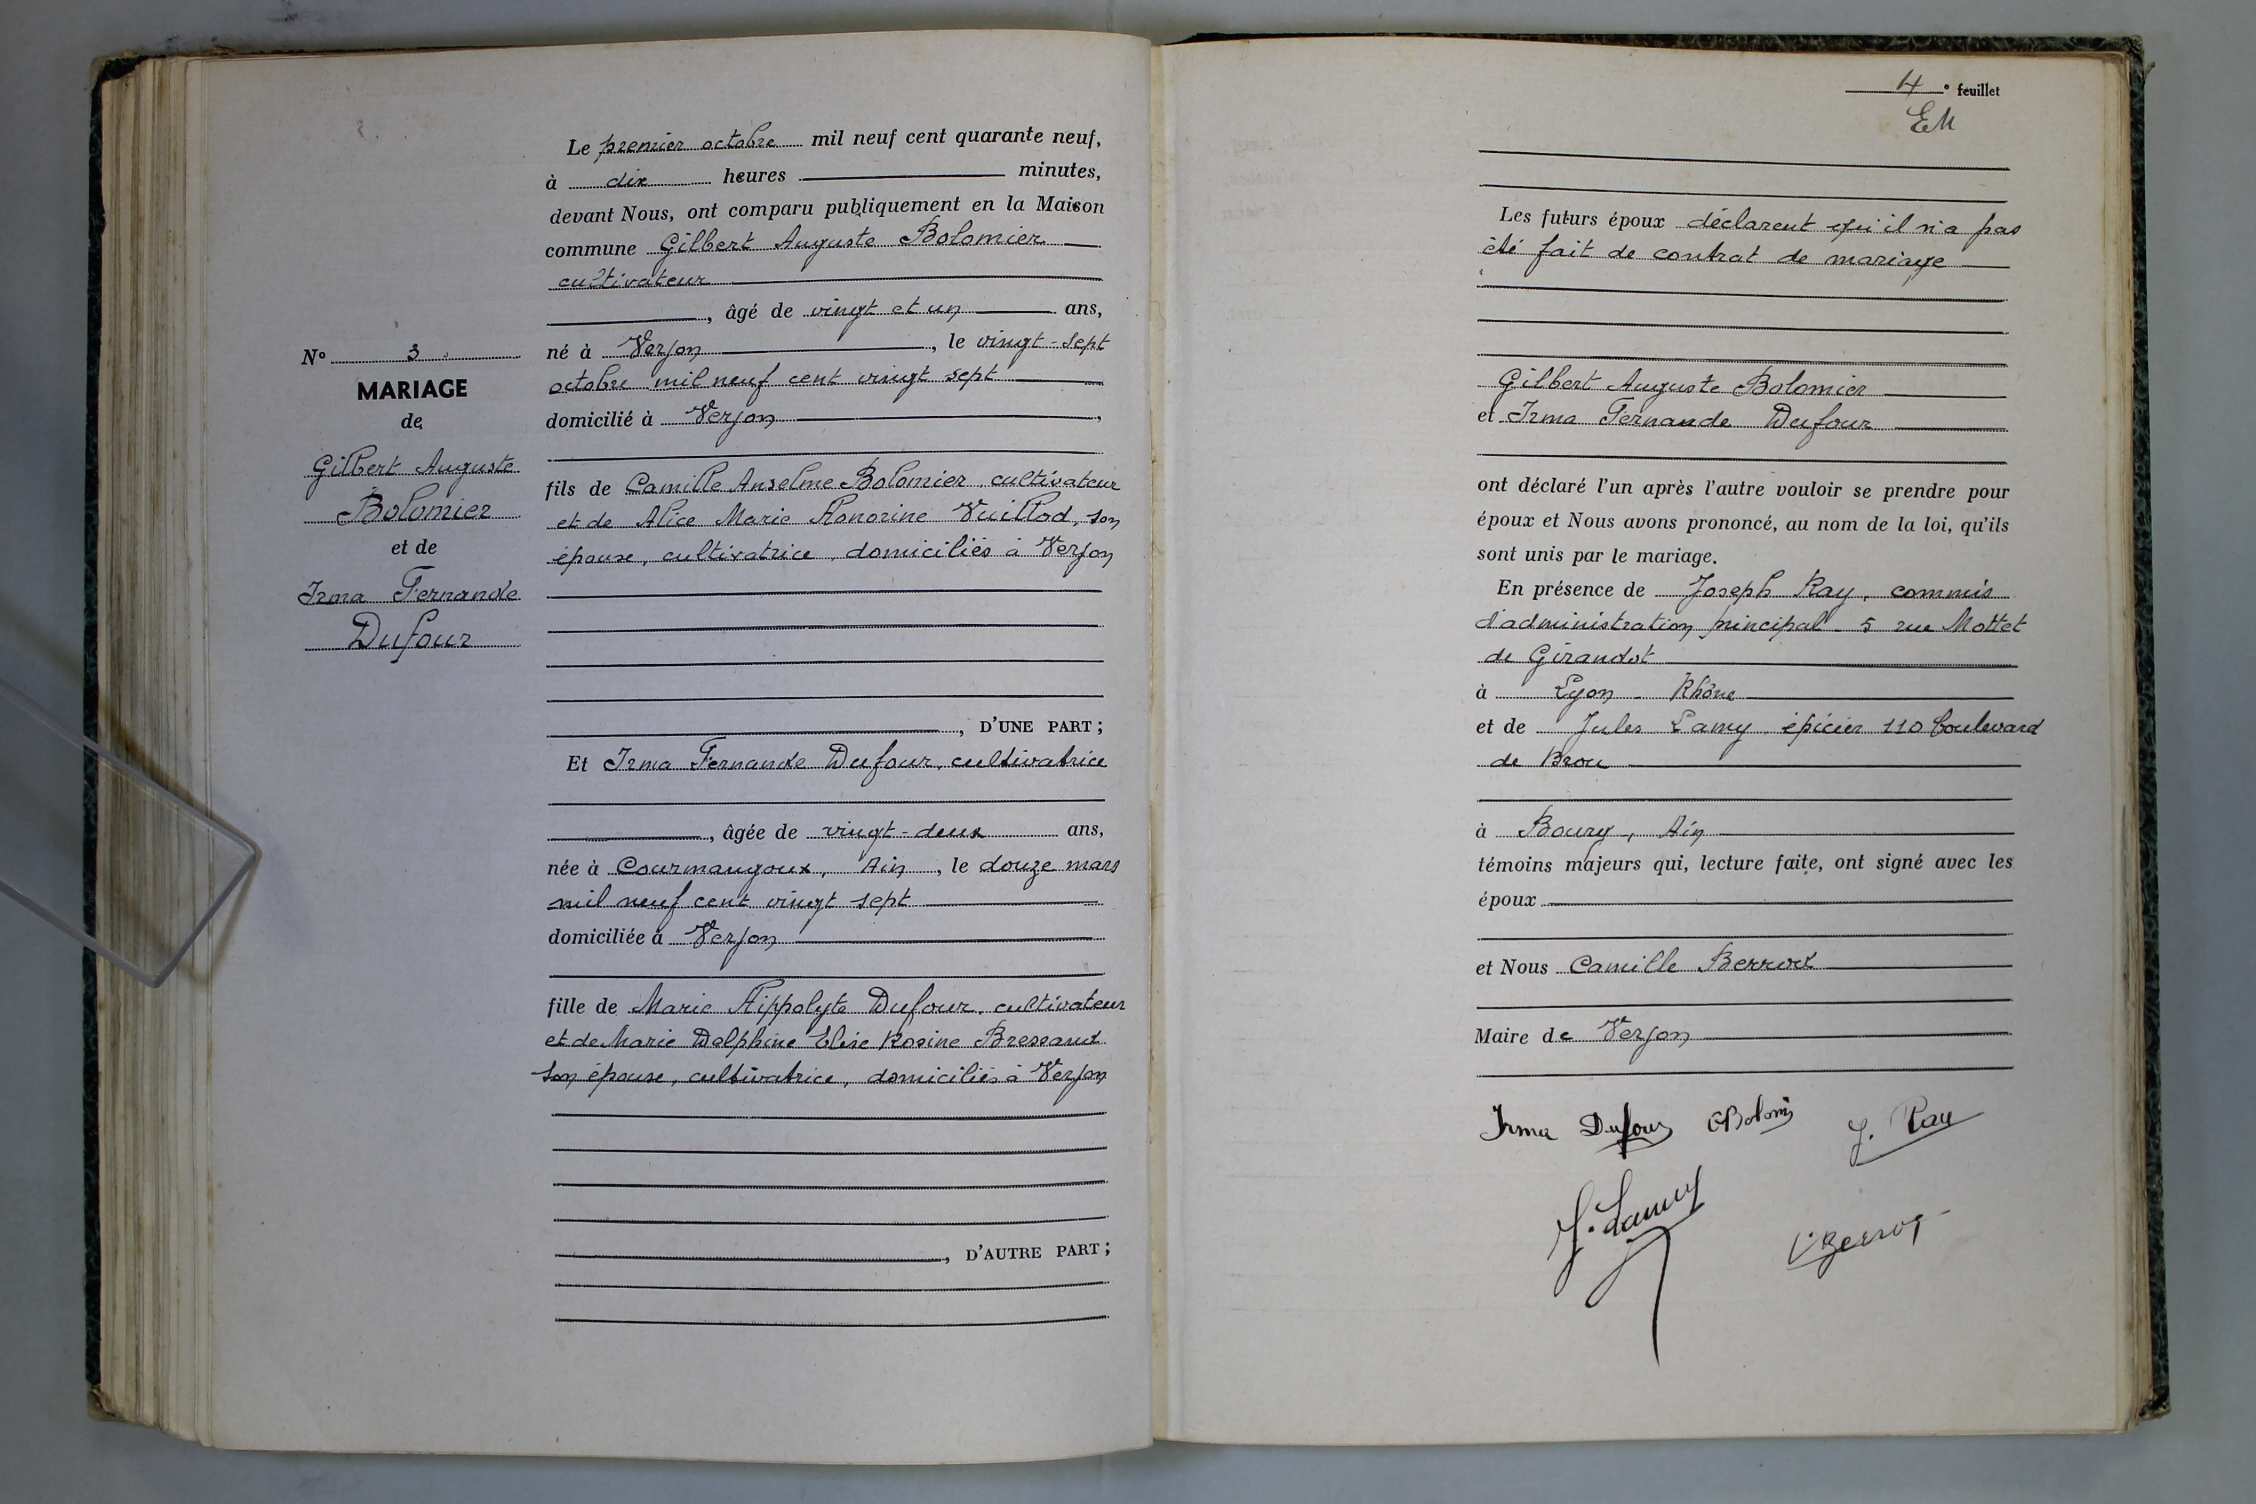 Le premier octobre mil neuf cent quarante neuf,
à dix heures minutes,
devant Nous, ont comparu publiquement en la Maison
commune Gilbert Auguste Bolomier
cultivateur
, âgé de vingt et un ans,
né à Verjon, le vingt-sept
octobre mil neuf cent vingt sept
domicilié à Verjon,
fils de Camille Anselme Bolomier, cultivateur
et de Alice Marie Honorine Vuillod, son
épouse, cultivatrice, domiciliés à Verjon
, D'UNE PART;
Et Irma Fernande Dufour, cultivatrice
, âgée de vingt-deux ans,
née à Courmangoux, Ain, le douze mars
mil neuf cent vingt sept
domiciliée à Verjon
fille de Marie Hippolyte Dufour, cultivateur
et de Marie Delphine Elise Rosine Bressaud
son épouse, cultivatrice, domiciliés à Verjon
, D'AUTRE PART;
N° 3
MARIAGE
de
Gilbert Auguste
Bolomier
et de
Irma Fernande
Dufour
4e feuillet
EM
Les futurs époux déclarent qu'il n'a pas
été fait de contrat de mariage
Gilbert Auguste Bolomier
et Irma Fernande Dufour
ont déclaré l'un après l'autre vouloir se prendre pour
époux et Nous avons prononcé, au nom de la loi, qu'ils
sont unis par le mariage.
En présence de Joseph Ray, commis
d'administration principal 5 rue Mottet
de Gérandot
à Lyon - Rhône
et de Jules Lamy épicier 110 boulevard
de Brou
à Bourg, Ain
témoins majeurs qui, lecture faite, ont signé avec les
époux
et Nous Camille Berrod
Maire de Verjon
Irma Dufour GBolomier J. Ray
J. Lamy
C Berrod